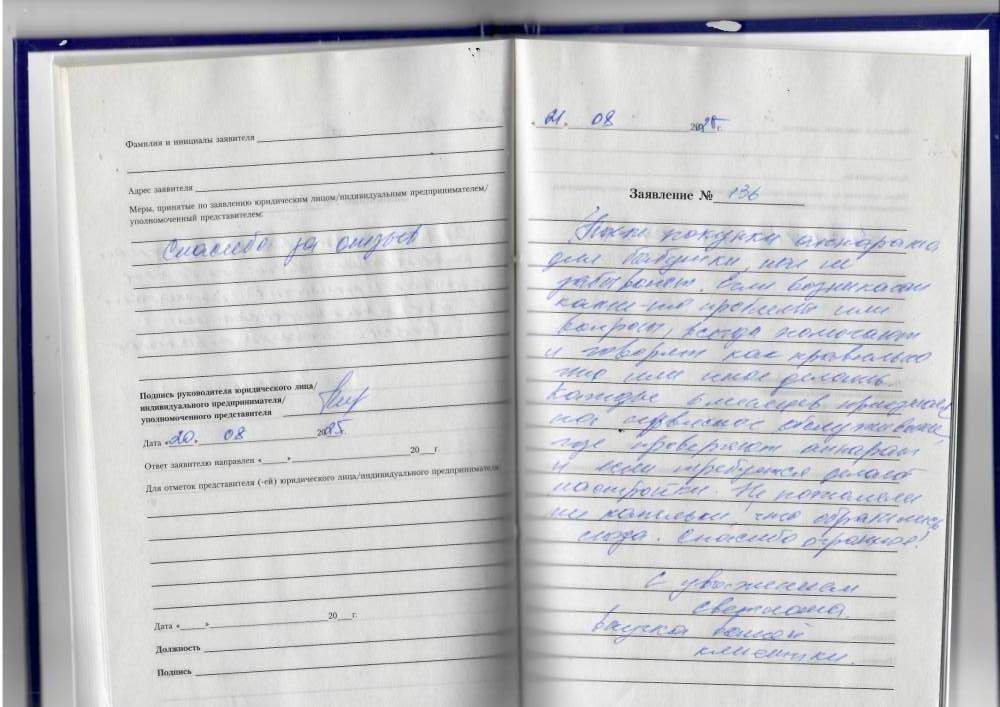 Фамилия и инициалы заявителя
Адрес заявителя
Меры, принятые по заявлению юридическим лицом/индивидуальным предпринимателем/
уполномоченный представителем:
Спасибо за отзыв
Подпись руководителя юридического лица/
индивидуального предпринимателя/
уполномоченного представителя
Дата «20» 08 2025г.
Ответ заявителю направлен «» 20 г.
Для отметок представителя (-ей) юридического лица/индивидуального предпринимателя
Дата «» 20 г.
Должность
Подпись
«21» 08 2025г.
Заявление № 136
После покупки аппарата
для бабушки, нас не
забывают. Если возникают
какие-то проблемы или
вопросы, всегда помогают
и говорят как правильно
то или иное делать.
Каждые 6 месяцев приезжаем
на сервисное обслуживание,
где проверяют аппарат
и если требуется делают
настройки. Не пожалели
ни капельки, что обратились
сюда. Спасибо огромное!
С уважением
Светлана.
внучка вашей
клиентки.